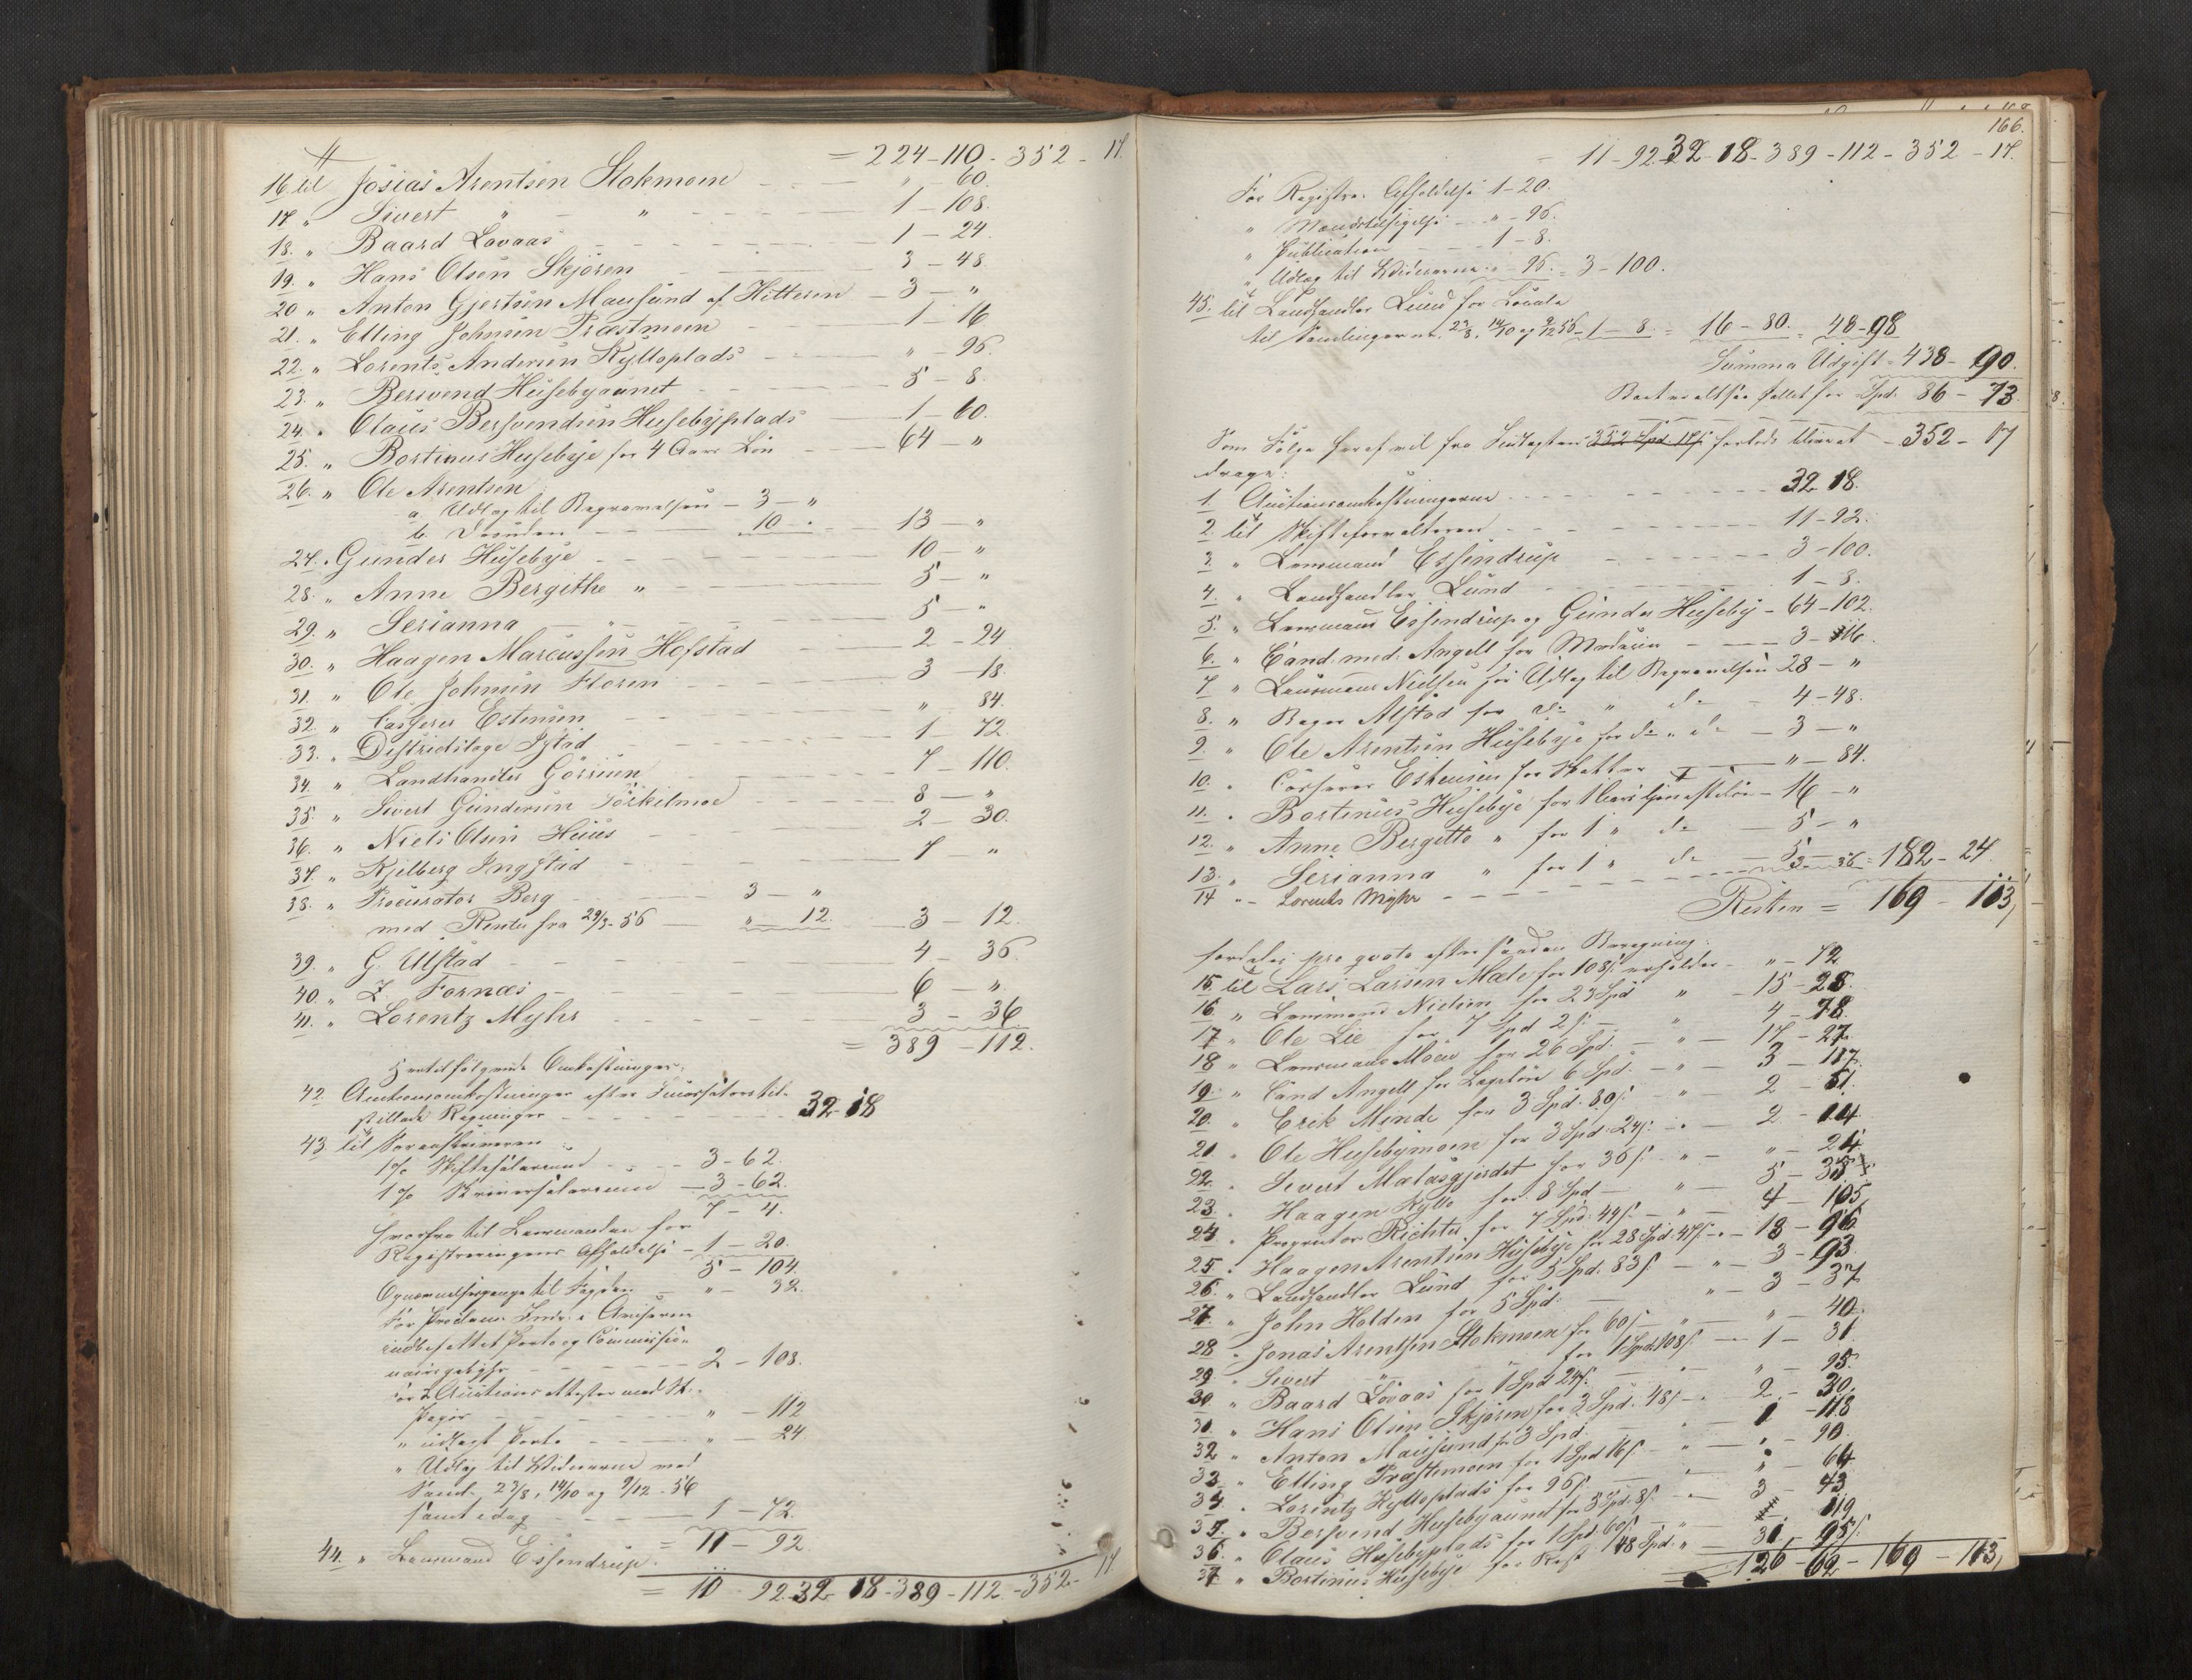 = 224 - 110 - 352 - 17.
16. til Josias Arentsen Stokmoen - " - 60.
17. " Sivert " - " - 1 - 108.
18. " Baard Lovaas - 1 - 24.
19. " Hans Olsen Skjøren - 3 - 48
20 " Anton Gjertsen Mausund af Hitteren - 3 - "
21. " Elling Johnsen Præstmoen - 1 - 16
22. " Lorents Andersen Kylloplads - " - 96.
23. " Bersvend Husebyaunet - 5 - 8.
24. " Claus Bersvendsen Husebyplads - 1 - 60.
25. " Bortinus Husebye for 4 Aars Løn - 64 - "
26. " Ole Arentsen
a. Udlæg til Begravelsen - 3 - "
b. 10 - " - 13 - "
27. " Gunder Husebye - 10 - "
28. " Anne Bergithe " - 5 - "
29. " Serianna - " - 5 - "
30. " Haagen Marcussen Hofstad - 2 - 24
31. " Ole Johnsen Floren - 3 - 18.
32. " Casserer Estensen - " 84.
33. " Districtslæge - 1 - 72.
34. " Landhandler Görrisen - 7 - 110.
35. " Sivert Gundersen - 8 - "
36. " Niels Olsen - 2 - 30.
37. " Kjelberg Ingstad - 7 - "
38. " Procurator Berg - 3 - "
med Renter fra 29/3-56 - " - 12. - 3 - 12.
39. " G. Ulstad - 4 - 36.
40. " Z Fornæs - 6 - ".
41. " Lorentz Myhr - 3 - 36
= 389 - 112.
Hertil følgende Omkostninger:
42. Auctionsomkostninger efter
Regninger - 32 - 18
43. til Sorenskriveren
1% Skiftesalarium - 3 - 62.
1% - 3 - 62.
7 - 4.
hvorfra til Lensmanden for
Registreringens Afholdelse - 1 - 20.
5 - 104.
til Fogden - " - 32.
For Proclam. Indr. i
Porto og Commissio-
- 2 - 108.
For 2 med St.
Papir - " - 112
" udlagt Porto - " - 24
" Udlæg til Vidnerne ved
Saml. 23/8, 14/10 og 9/12 - 56
samt idag - 1 - 72.
= 11 - 92.
44. " Lensmand Essendrup.
= 10 - 92. 32 - 18 - 389 - 112 - 352 - 17
166.
11 - 92 32 - 18 - 389 - 112 - 352 - 17.
For Registr. Afholdelse 1 - 20.
" - " - 96.
" Publication - 1 - 8.
" Udlæg til Vidnerne - " - 96. = 3 - 100.
45. til Landhandler Lund for Locale
til Samlingerne 23/8, 14/10 og 9/12 56 - 1 - 8. = 16 - 80. = 48 - 98
Summa Udgift = 438 - 90.
Boet er altsaa fallit for Spd. 86 - 73.
Som Følge heraf vil fra Indtægten 352 Spd. 17 s. forlods blive at - 352 - 17
drage:
1 Auctionsomkostningerne - 32 18.
2. til Skifteforvalteren - 11 - 92.
3. " Lensmand Essendrup - 3 - 100.
4. " Landhandler Lund - 1 - 8.
5. " Lensmand Essendrup og Gunder Huseby - 64 - 102.
6. " Cand. med. Angell for Medicin - 3 - 116.
7. " Lensmand Nielsen for Udlæg til Begravelsen 28 - "
8. " Bager Alstad for do " do - 4 - 48.
9. " Ole Arentsen Husebye for do " do - 3 - "
10. " Casserer Estensen for Skatter - " - 84.
11. " Bortinus Husebye for 1 Aars Tjenesteløn - 16 - "
12. " Anne Bergitte " for 1 " do - 5 - "
13. " Serianna " for 1 " do - 5 -
14 " - Lorents Myhr - 3 - 36 = 182 - 24
Resten = 169 - 113,
fordeles pro qvota efter saadan Beregning:
15. til Lars Larsen Mæle for 108 s. erholder - " - 72
16. " Lensmand Nielsen for 23 Spd " - 15 - 28.
17. " Ole Lie for 7 Spd 2 s. - " - 4 - 78.
18 " Lensmand Moe for 26 Spd. - " - 17 - 27.
19. " Cand Angell for Lægeløn 6 Spd. - " - 3 - 117.
20. " Erik Minde for 3 Spd. 80 s. - " - 2 - 51.
21 " Ole Husebymoen for 3 Spd. 24 s. - " - 2 - 14
22. " Sivert Mælasgjerdet for 36 s. - " - " - 24
23. " Haagen Kyllo for 8 Spd - " - 5 - 35
24. " Richter for 7 Spd. 44 s. - " - 4 - 105,
25. " Haagen Arentsen Husebye for 28 Spd. 47 s. - " - 18 - 96
26. " Landhandler Lund for 5 Spd. 83 s. - " - 3 - 93
27. " John Holden for 5 Spd. - " - 3 - 37
28 " Jonas Arentsen Stokmoen for 60 s. - " - " - 40.
29 " Sivert " for 1 Spd. 108 s. - 1 - 31
30 " Baard Lovaas for 1 Spd 24 s. - " - " - 95.
31. " Hans Olsen Skjøren for 3 Spd. 48 s. - " - 2 - 30.
32 " Anton Mausund for 3 Spd. - " - 1 - 118
33 " Elling Præstmoen for 1 Spd 16 s. - " - " - 90.
34. " Lorentz Kylloplads for 96 s. - " - 64
35. " Bersvend Husebyaunet for 5 Spd. 8 s. - 3 - 43
36. " Claus Husebyplads for 1 Spd. 60 s. - " - 119
37 " Bortinus Husebye for Rest 48 Spd. " - 31 - 95 s.
= 126 - 62 - 169 - 113,